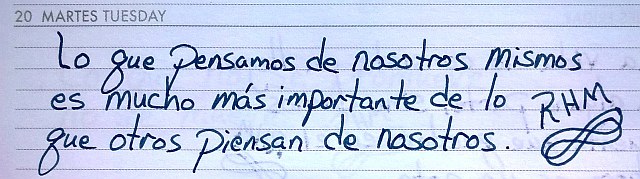 20 MARTES TUESDAY
Lo que pensamos de nosotros mismos
es mucho más importante de lo
que otros piensan de nosotros.
RHM